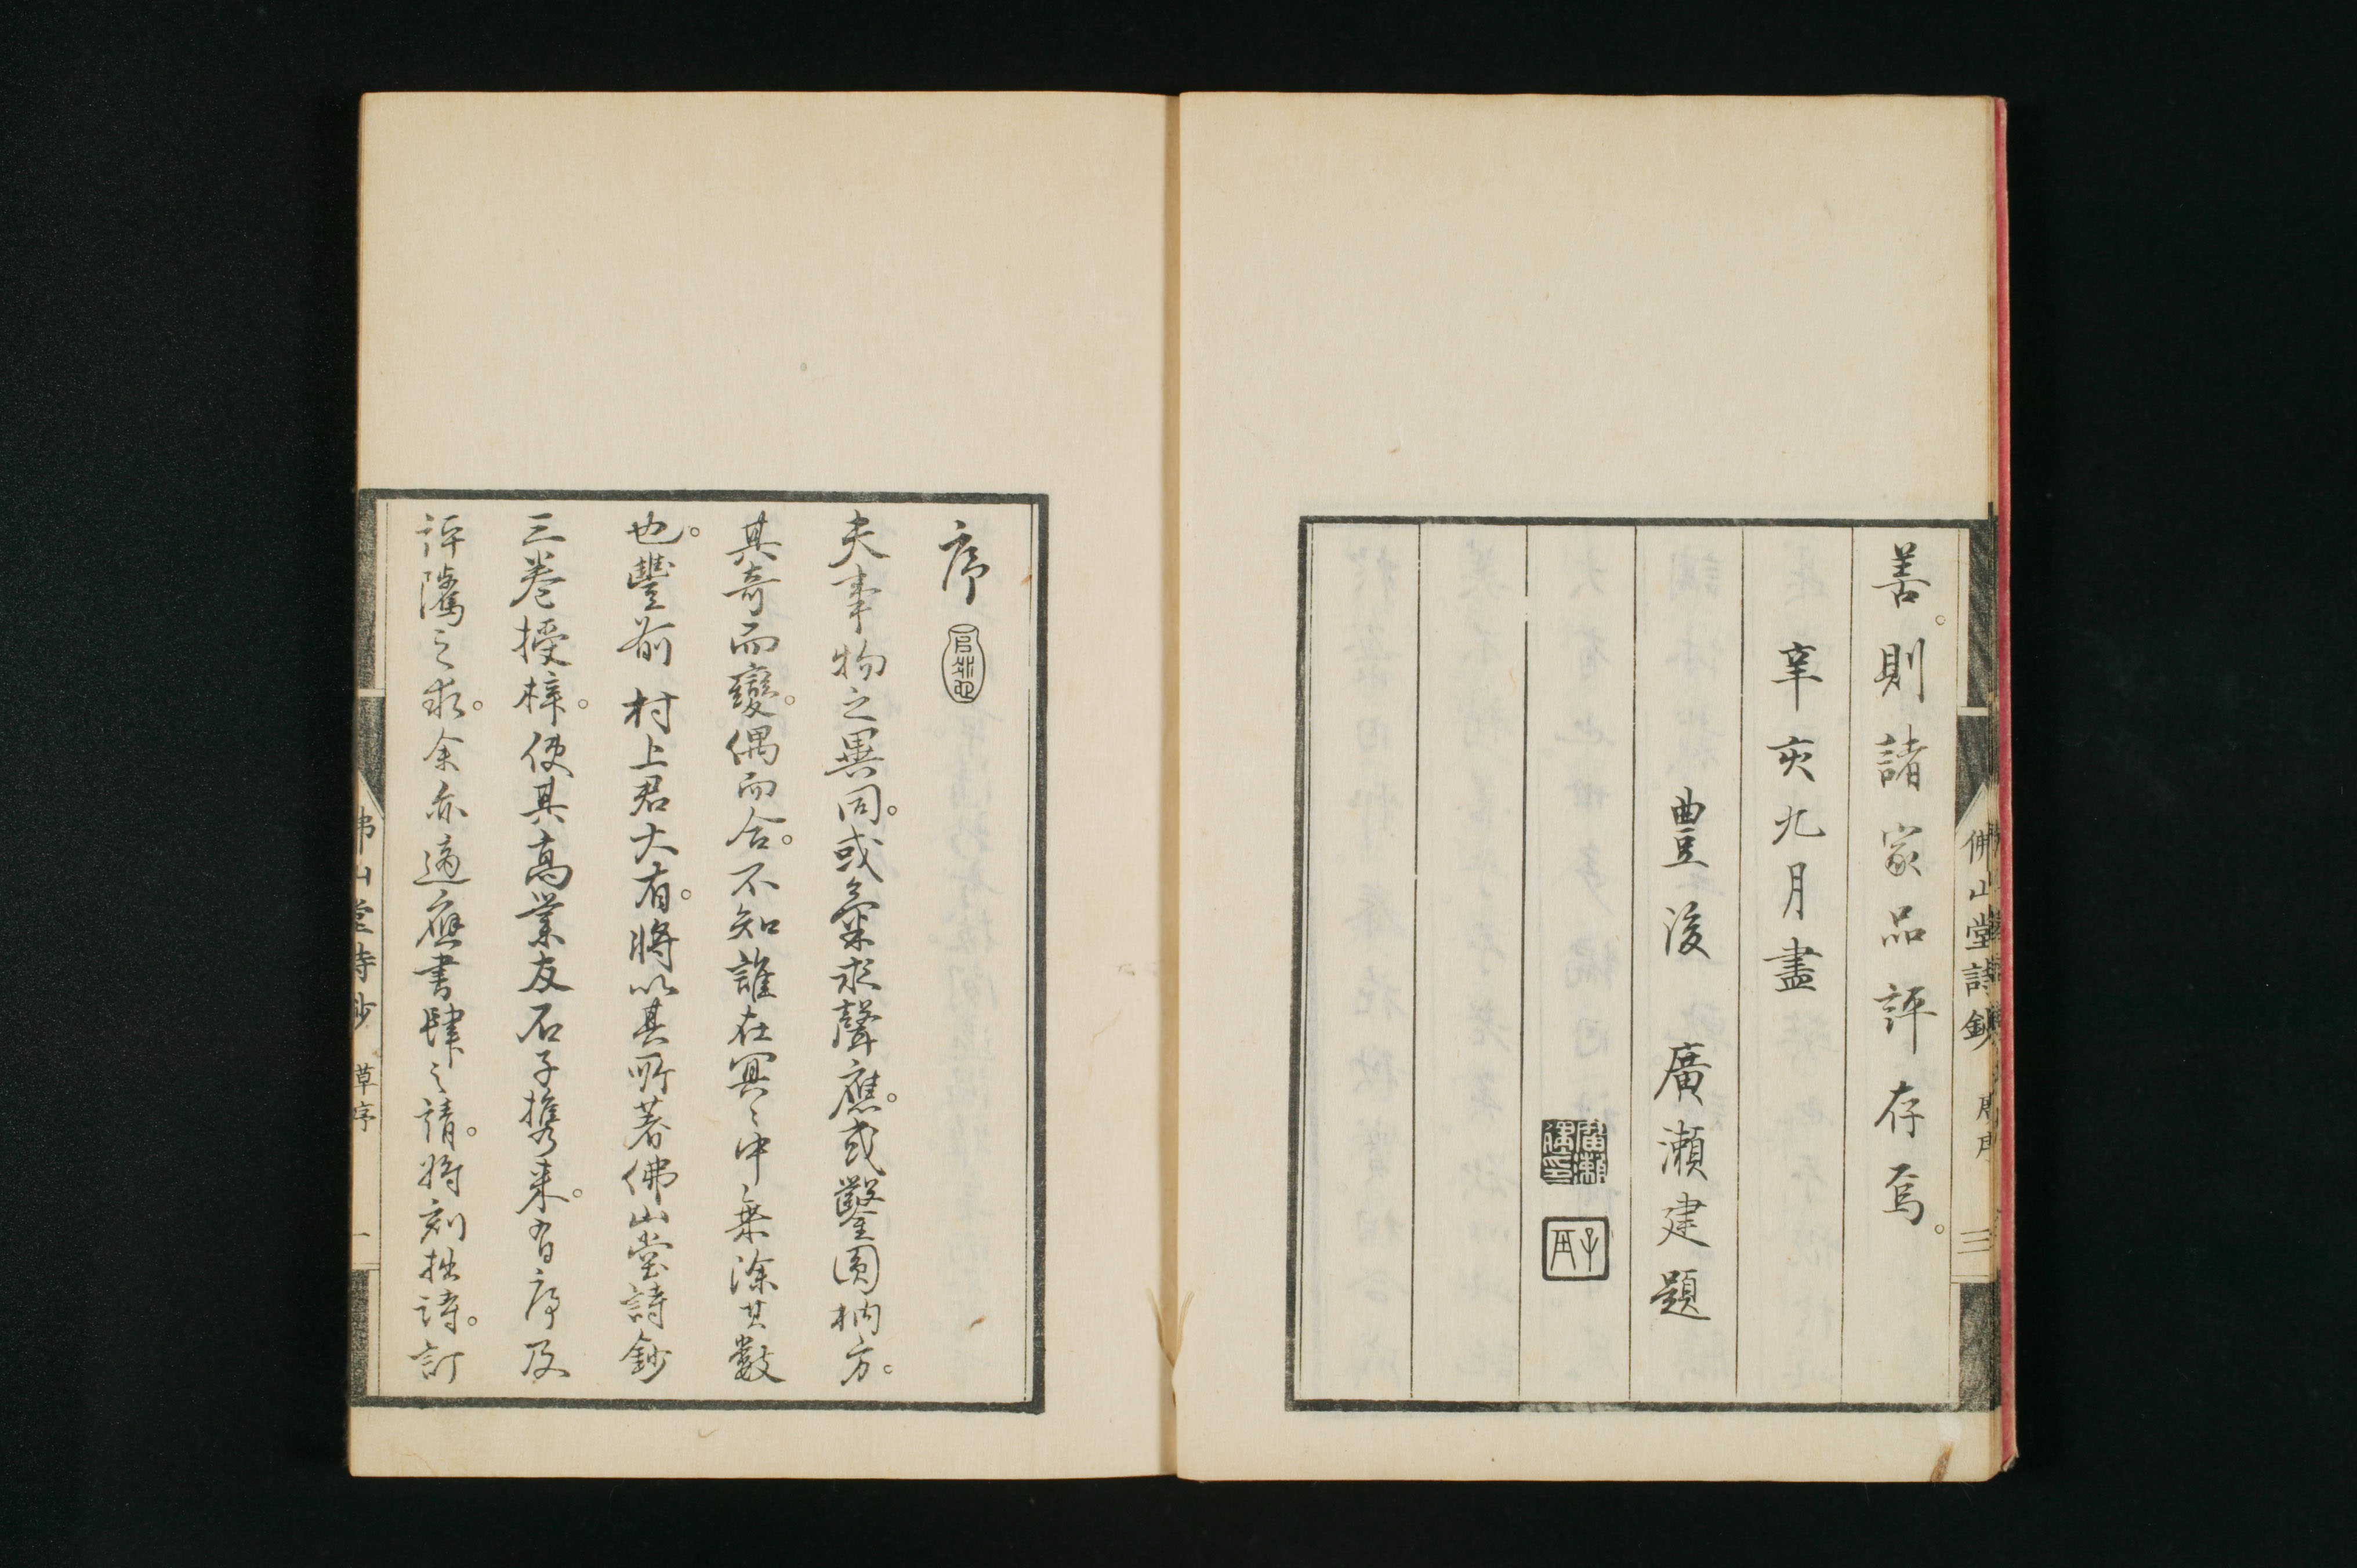 善。則諸家品評存焉。
辛亥九月盡
豊後 廣瀬建題
佛山堂詩鈔
三
序
夫事物之異同。或氣求聲應。或鑿圓枘方。
其奇而變。偶而合。不知誰在冥〻中乗除其數
也。豐前 村上君大有。將以其所著佛山堂詩鈔
三巻授梓。使其高業友石子携来。有序及
評隲之求。余亦適應書肆之請。將刻拙詩。訂
佛山堂詩鈔 草序 一